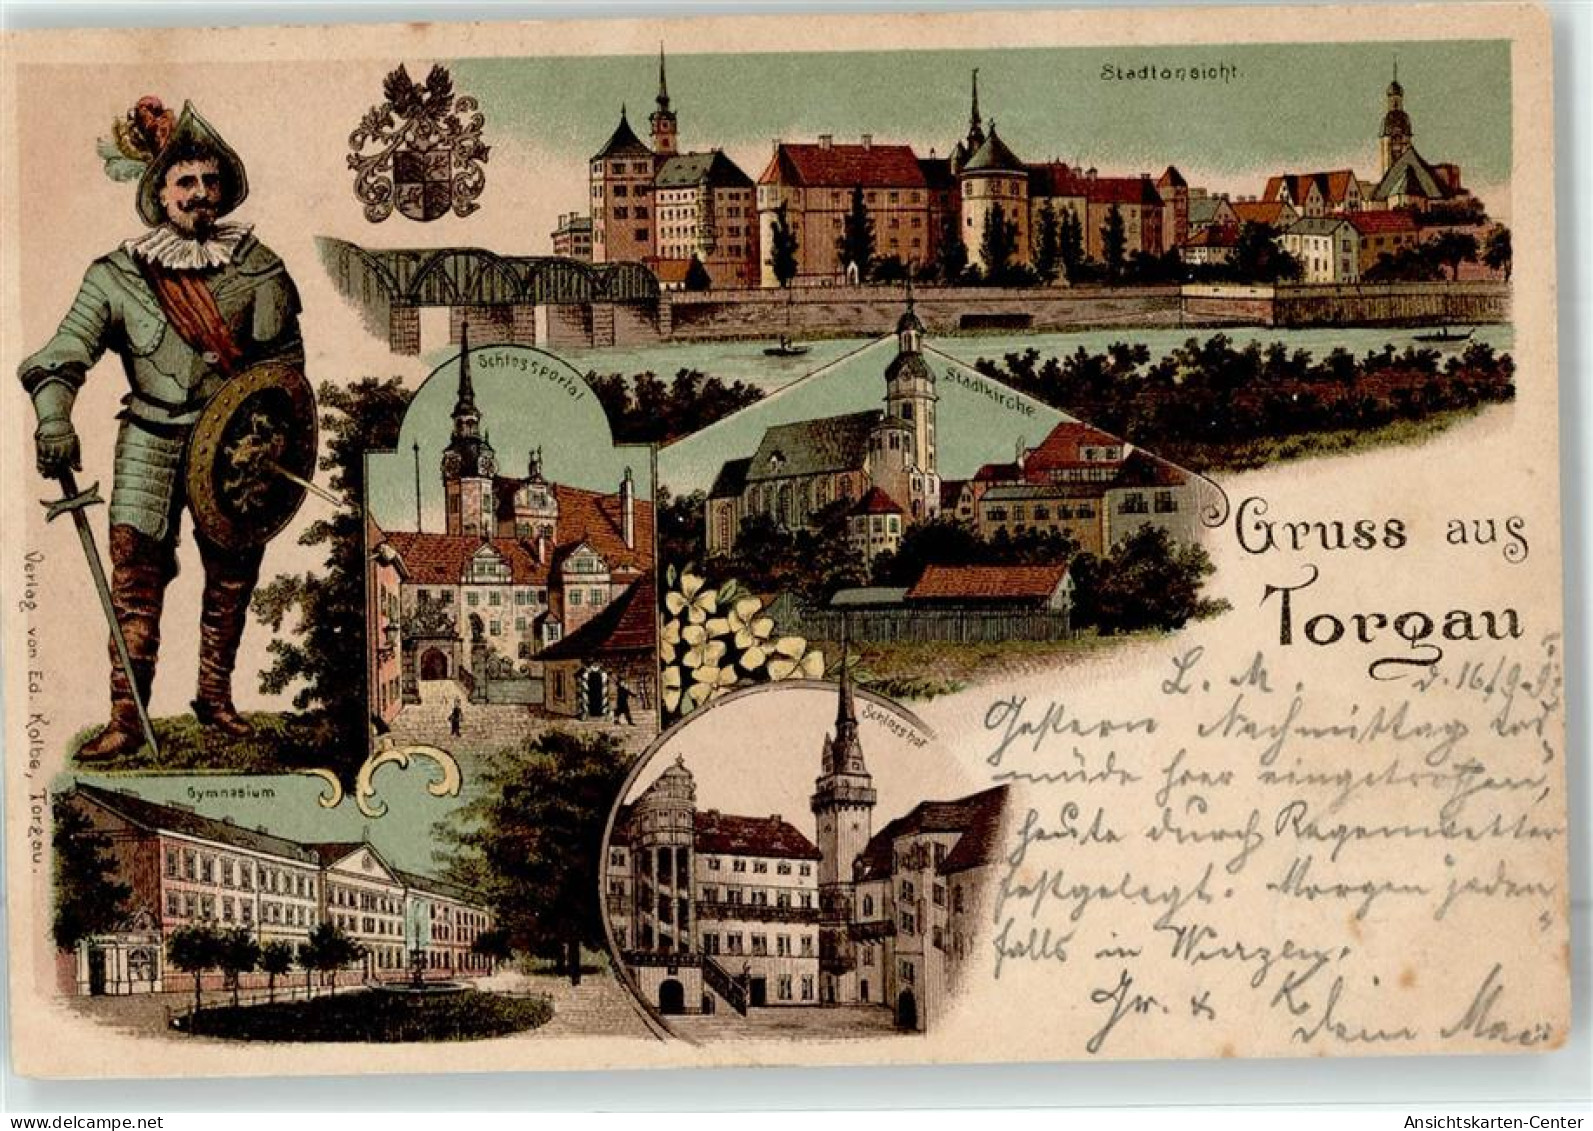 Stadtansicht.
Schlossportal
Stadtkirche
Gruss aus
Torgau
Verlag von Ed. Kolbe, Torgau.
Gymnasium
Schlosshof
L. M. d. 16/9.
Gestern Nachmittag
müde hier eingetroffen,
heute durch Regenwetter
festgelegt. Morgen jeden
falls in Wurzen.
Gr. & K
Dein
Ansichtskarten-Center